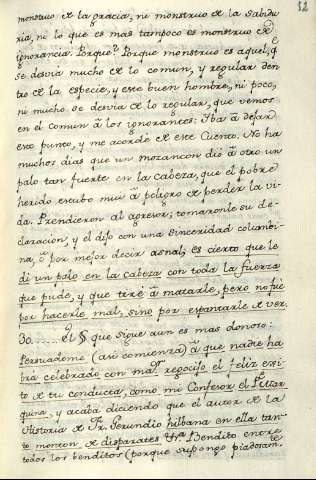 32
monstruo de la gracia, ni monstruo de la sabidu
ria, ni lo que es mas tampoco es monstruo de
ignorancia. Porque? Porque monstruo es aquel, q̃
se desvia mucho de lo comun, y regular den
tro de la especie, y este buen hombre, ni poco,
ni mucho se desvia de lo regular, que vemos
en el comun de los ignorantes. Iba à dejar
este punto, y me acorde de este Cuento. No ha
muchos dias que un mozancon diò à otro un
palo tan fuerte en la cabeza, que el pobre
herido estubo mui à peligro de perder la vi-
da. Prendieron al agresor; tomaronle su de-
claracion, y el dijo con una sinceridad columbi-
na, ò por mejor decir asnal, es cierto que le
di un palo en la cabeza con toda la fuerza
que pude, y que tirè à matarle, pero no fue
por hacerle mal, sino por espantarle de ver.
30...... El § que sigue aun es mas donoso:
Persuadome (asi comienza) à que nadie ha
brá celebrado con mas regocijo el feliz exi
to de tu conducta, como mi Confesor el P. Mar
quina, y acaba diciendo que el autor de la
Historia de Fr. Gerundio hilbana en ella tan-
to monton de disparates. Bendito entre
todos los benditos (porque supongo piadosam.te